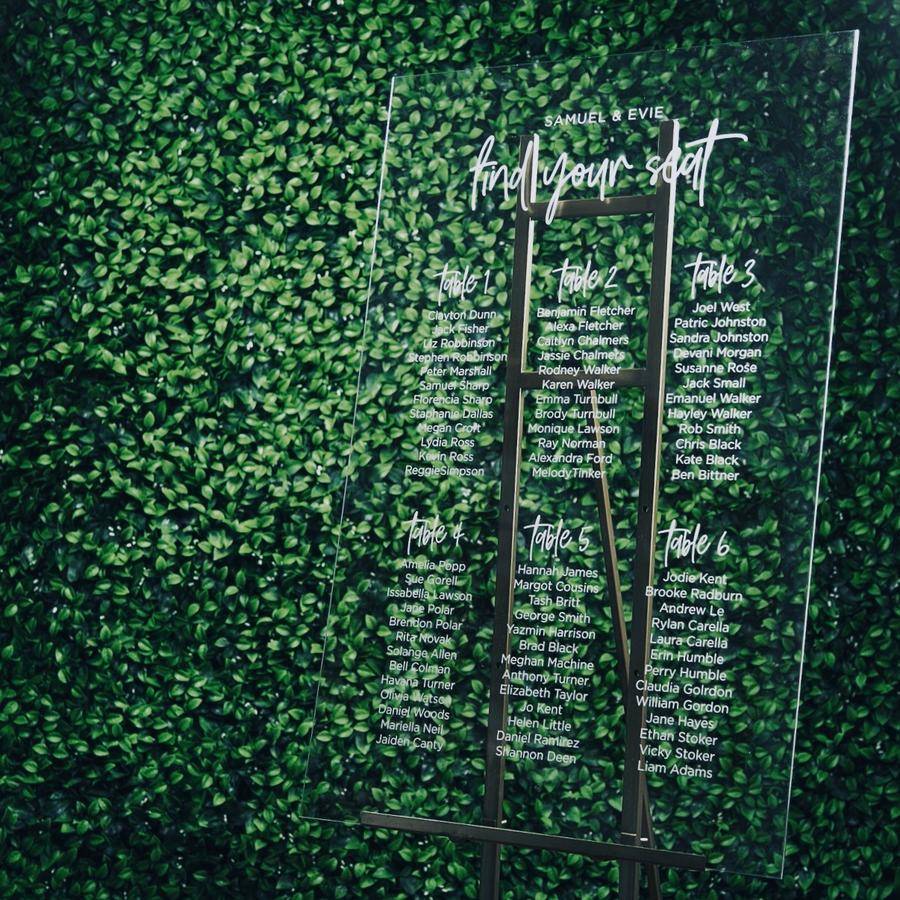 SAMUEL & EVIE
find your seat
table 1
Clayton Dunn
Jack Fisher
Liz Robbinson
Stephen Robbinson
Peter Marshall
Samuel Sharp
Florencia Sharp
Staphanie Dallas
Megan Croft
Lydia Ross
Kevin Ross
ReggieSimpson
table 2
Benjamin Fletcher
Alexa Fletcher
Caitlyn Chalmers
Jassie Chalmers
Rodney Walker
Karen Walker
Emma Turnbull
Brody Turnbull
Monique Lawson
Ray Norman
Alexandra Ford
MelodyTinker
table 3
Joel West
Patric Johnston
Sandra Johnston
Devani Morgan
Susanne Rose
Jack Small
Emanuel Walker
Hayley Walker
Rob Smith
Chris Black
Kate Black
Ben Bittner
table 4
Amelia Popp
Sue Gorell
Issabella Lawson
Jane Polar
Brendon Polar
Rita Novak
Solange Allen
Bell Colman
Havana Turner
Olivia Watson
Daniel Woods
Mariella Neil
Jaiden Canty
table 5
Hannah James
Margot Cousins
Tash Britt
George Smith
Yazmin Harrison
Brad Black
Meghan Machine
Anthony Turner
Elizabeth Taylor
Jo Kent
Helen Little
Daniel Ramirez
Shannon Deen
table 6
Jodie Kent
Brooke Radburn
Andrew Le
Rylan Carella
Laura Carella
Erin Humble
Perry Humble
Claudia Golrdon
William Gordon
Jane Hayes
Ethan Stoker
Vicky Stoker
Liam Adams